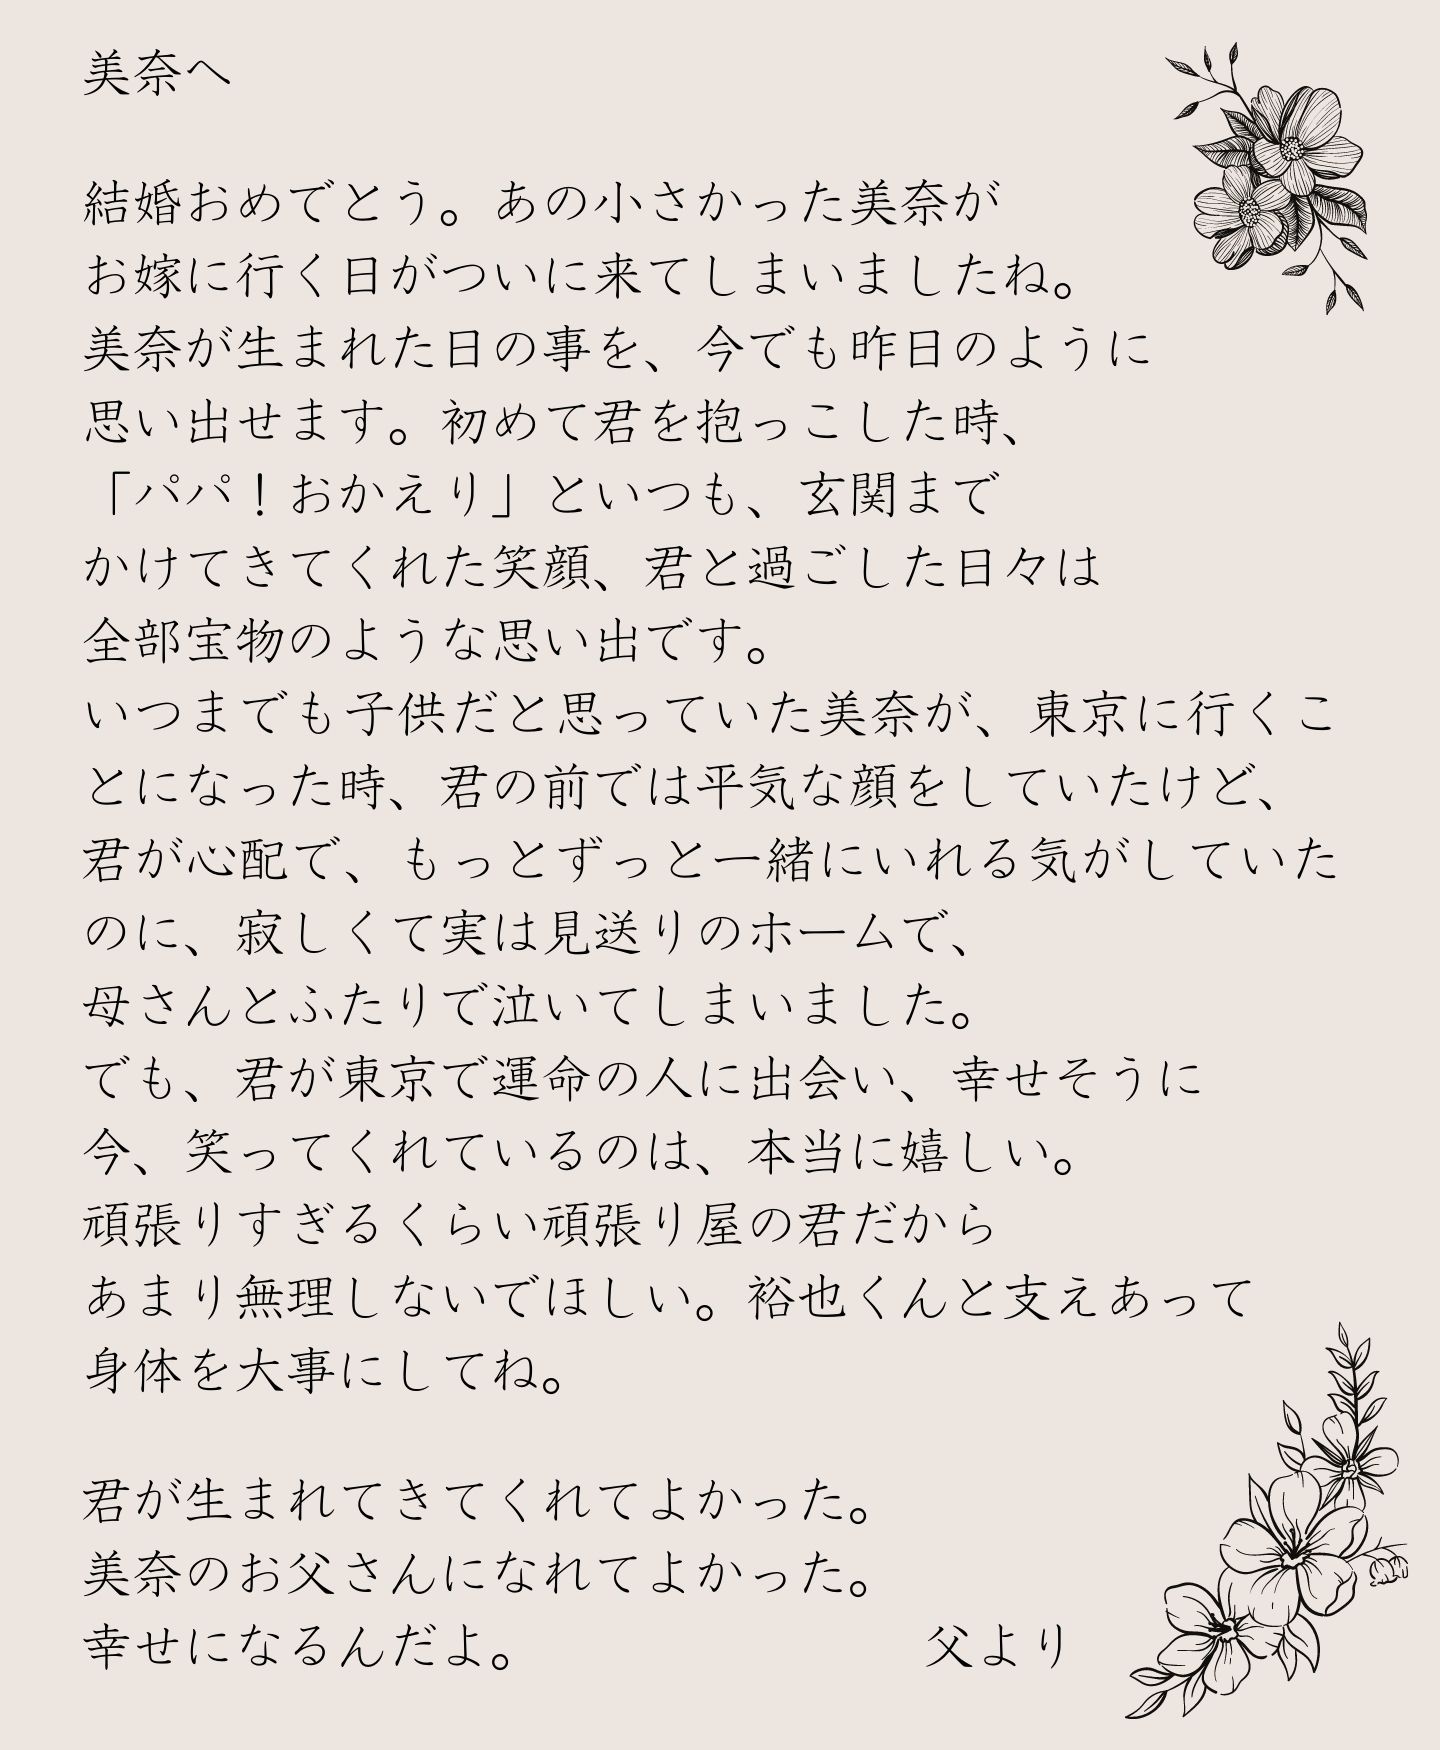 美奈へ
結婚おめでとう。あの小さかった美奈が
お嫁に行く日がついに来てしまいましたね。
美奈が生まれた日の事を、今でも昨日のように
思い出せます。初めて君を抱っこした時、
「パパ！おかえり」といつも、玄関まで
かけてきてくれた笑顔、君と過ごした日々は
全部宝物のような思い出です。
いつまでも子供だと思っていた美奈が、東京に行くこ
とになった時、君の前では平気な顔をしていたけど、
君が心配で、もっとずっと一緒にいれる気がしていた
のに、寂しくて実は見送りのホームで、
母さんとふたりで泣いてしまいました。
でも、君が東京で運命の人に出会い、幸せそうに
今、笑ってくれているのは、本当に嬉しい。
頑張りすぎるくらい頑張り屋の君だから
あまり無理しないでほしい。裕也くんと支えあって
身体を大事にしてね。
君が生まれてきてくれてよかった。
美奈のお父さんになれてよかった。
幸せになるんだよ。 父より